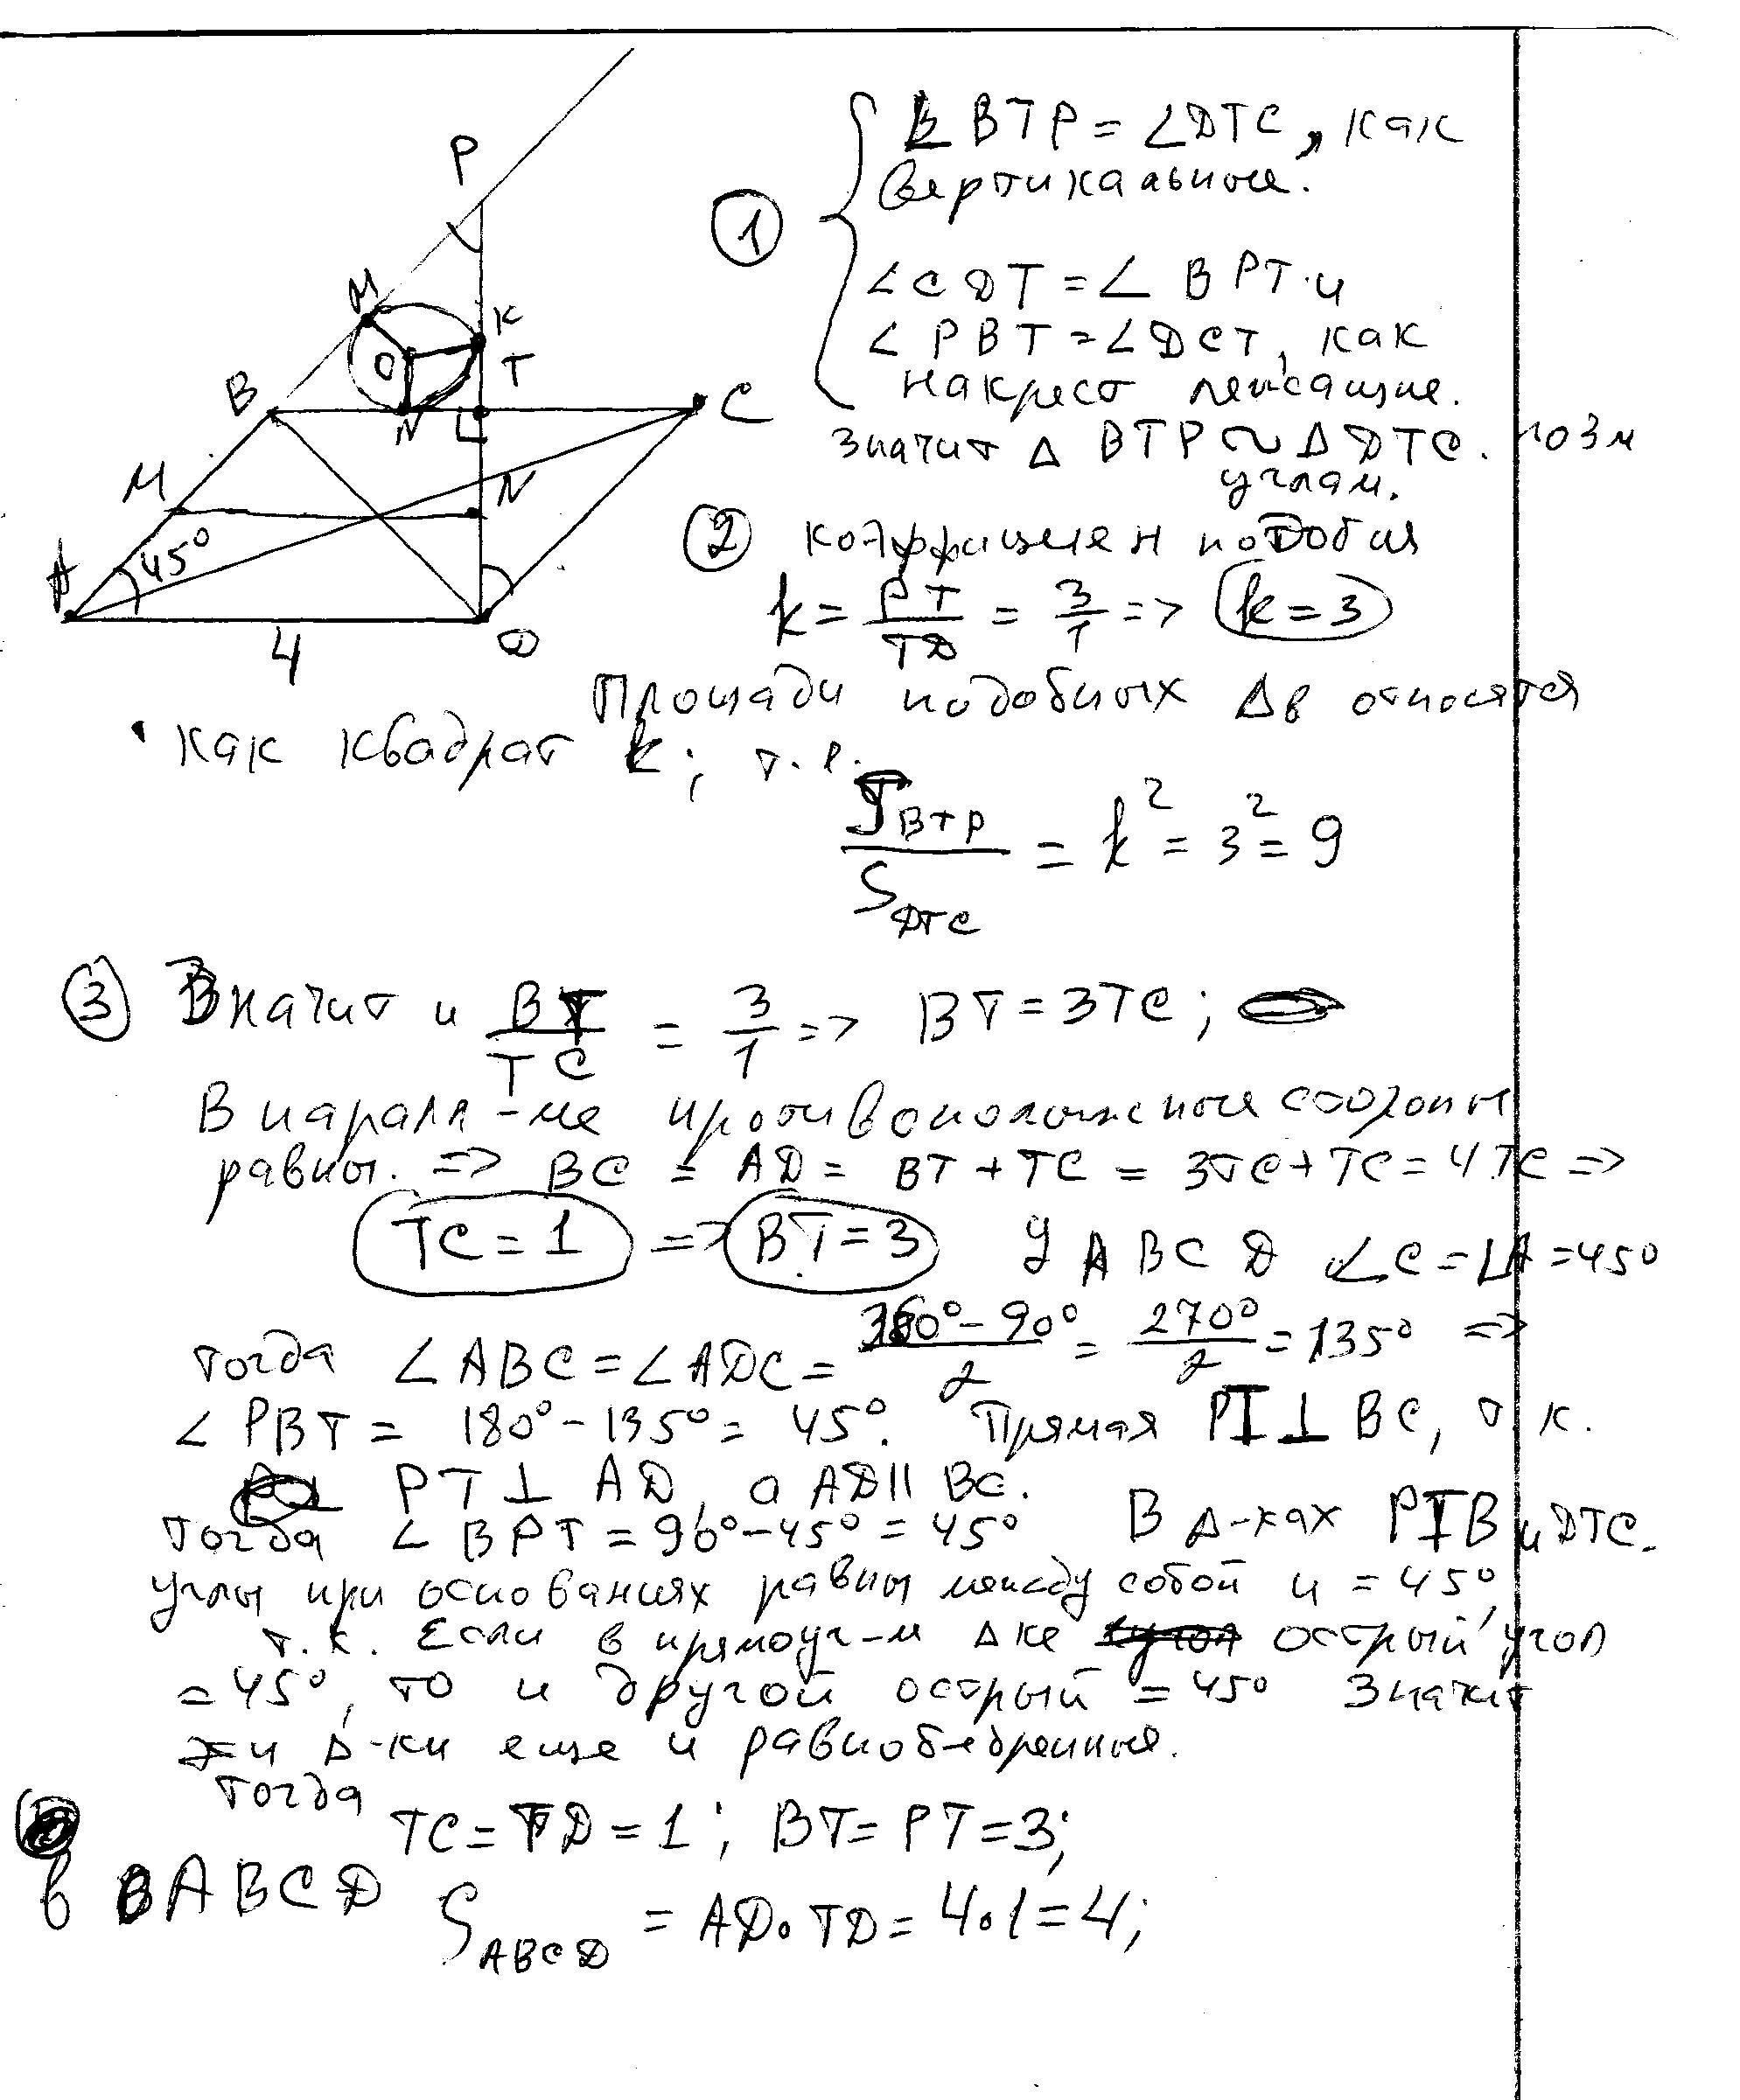 P
M
K
O
T
B
N
C
M
N
A
45°
D
4
① ∠BTP = ∠DTC, как
вертикальные.
∠CDT = ∠BPT и
∠PBT = ∠DCT, как
накрест лежащие.
Значит Δ BTP ∼ Δ DTC. по 3м
углам.
② коэффициен подобия
k = PT/TD = 3/1 => k = 3
Площади подобных Δв относятся
как квадрат k; т.е.
S BTP / S DTC = k² = 3² = 9
③ Значит и BT/TC = 3/1 => BT = 3TC;
В паралл-ме противоположные стороны
равны. => BC = AD = BT + TC = 3TC + TC = 4TC =>
TC = 1 => BT = 3 У ABCD ∠C = ∠A = 45°
тогда ∠ABC = ∠ADC = (360° - 90°)/2 = 270°/2 = 135° =>
∠PBT = 180° - 135° = 45°. Прямая PT ⊥ BC, т.к.
PT ⊥ AD, а AD ∥ BC.
тогда ∠BPT = 90° - 45° = 45° В Δ-ках PTB и DTC.
углы при основаниях равны между собой и = 45°,
т.к. Если в прямоуг-м Δке острый угол
= 45°, то и другой острый = 45° Значит
и Δ-ки еще и равнобедренные.
тогда
TC = TD = 1; BT = PT = 3;
в ABCD S ABCD = AD · TD = 4·1 = 4;